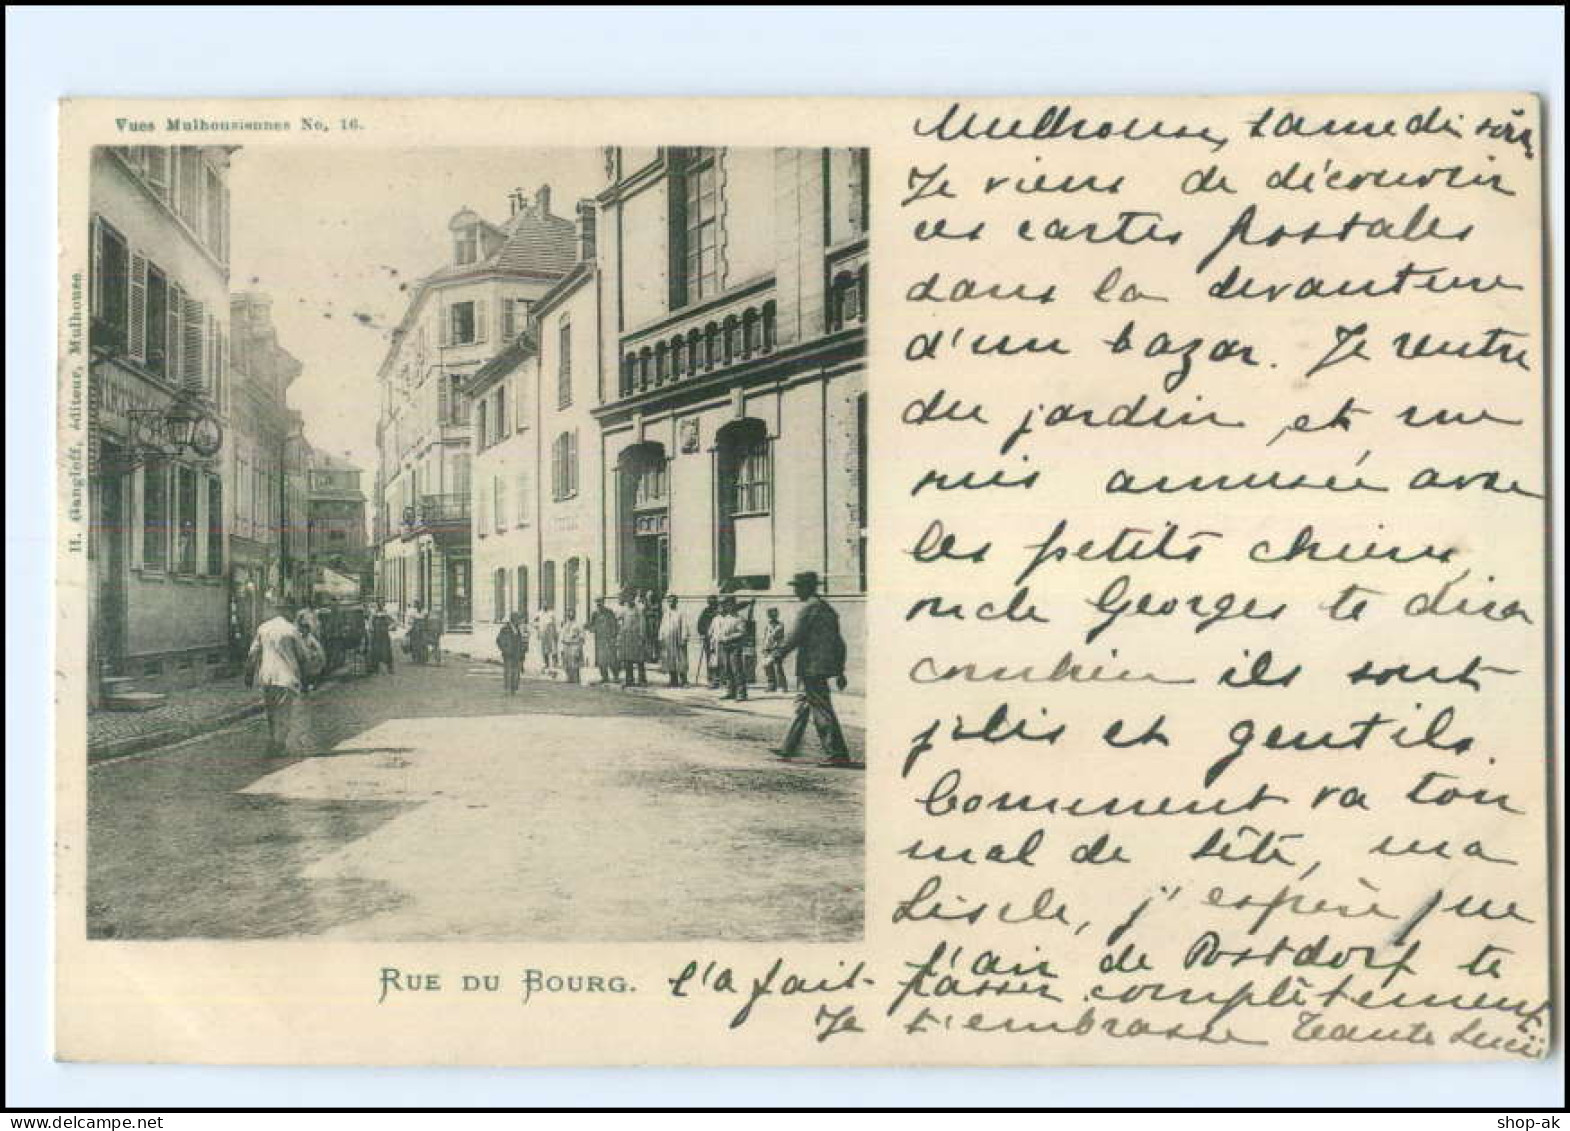 Vues Mulhousiennes No, 16.
H. Gangloff, éditeur, Mulhouse.
RUE DU BOURG.
Mulhouse, samedi soir.
Je viens de découvrir
ces cartes postales
dans la devanture
d'un bazar. Je rentre
du jardin, et me
suis amusée avec
les petits chiens,
oncle Georges te dira
combien ils sont
jolis et gentils.
Comment va ton
mal de tête, ma
Lisele, j'espère que
l'air de Postdorf te
l'a fait passer complètement
Je t'embrasse Tante Lucie
shop-ak